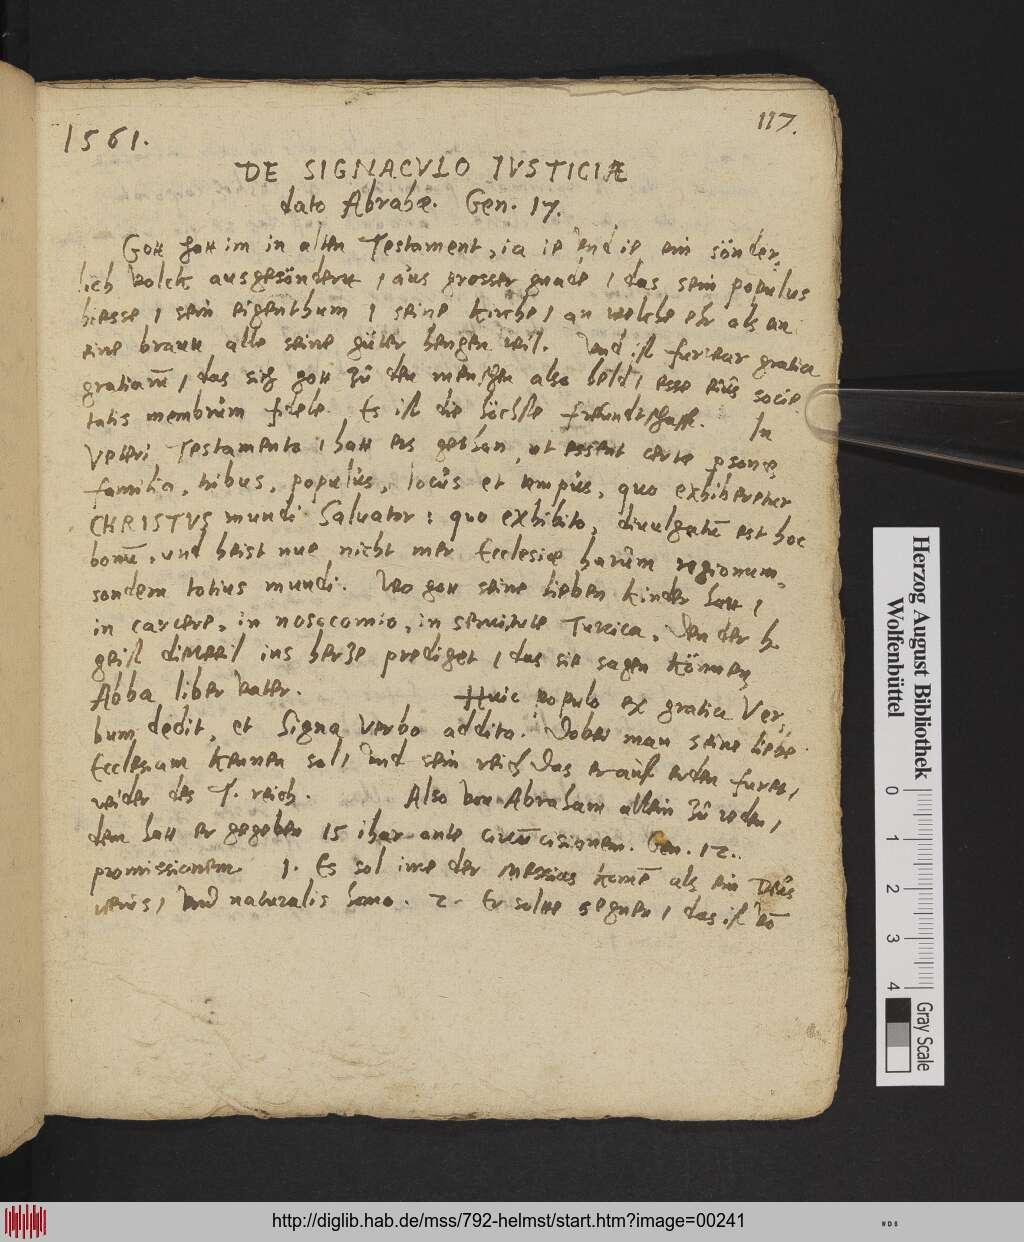 117.
1561.
DE SIGNACVLO IVSTICIÆ
dato Abrahæ. Gen. 17.
Gott hatt im in alten Testament, ia ie vnd ie ein sönder,
lich volck ausgesöndertt, aus grosser gnade, das sein populus
hiesse, sein eigenthum, seine kirche, an welche ehr als an
eine brautt alle seine güter hengen wil. Vnd ist furwar gratia
gratiarū, das sich gott zu den menschen also helt, esse eius socie
tatis membrum fidele. Es ist die höchste freundtschafft. In
Veteri Testamento, hatt ers gethan, ut essent certæ psonæ,
familia, tribus, populus, locus et tempus, quo exhiberetur
CHRISTVS mundi Saluator: quo exhibito, diuulgatū est hoc
bonū, und heist nue nicht mer Ecclesiæ harum regionum,
sondern totius mundi. Wo gott seine lieben kinder hatt,
in carcere, in nosocomio, in seruitute Turcica, den der h.
geist dieweil ins herze prediget, das sie sagen können,
Abba liber vater. Huic populo ex gratia Ver,
bum dedit, et Signa verbo addita. Dobei man seine liebe
Ecclesiam kennen sol, vnd sein reich das er auff erden furet,
weider des T. reich. Also von Abraham allein zu reden,
dem hatt er gegeben 15 ihar ante circūcisionem. Gen. 12.
promissionem 1. Es sol ime der Messias komē als ein Deus
uerus, vnd naturalis homo. 2. Er solle segnen, das ist vō
Herzog August Bibliothek
Wolfenbüttel
0 1 2 3 4
Gray Scale
http://diglib.hab.de/mss/792-helmst/start.htm?image=00241